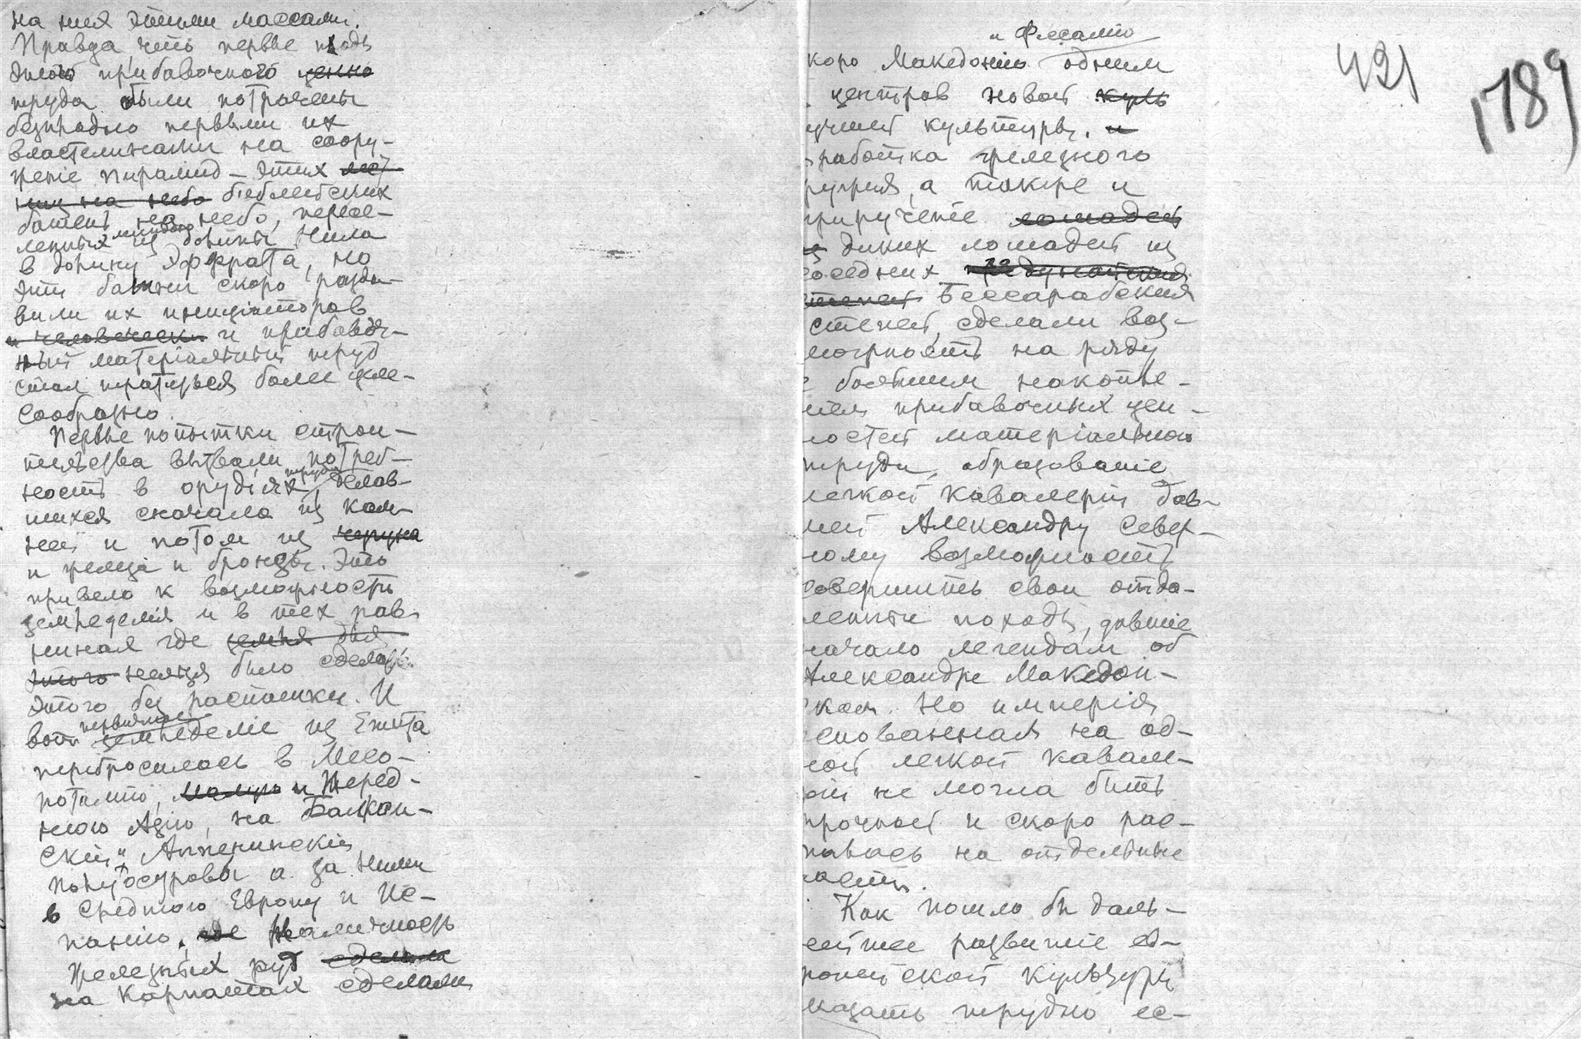 на нея этими массами.
Правда, что первые плоды
этого прибавочного ценно
труда были потрачены
безплодно первыми их
властелинами на соору-
жение пирамид – этих лест
ниц на небо библейских
башень на небо, пересе-
ленных мифами из долины Нила
в долину Эфрата, но
эти башни скоро разда-
вили их инициаторов
и человечески и прибавоч-
ный матеріяльный труд
стал тратиться более целе-
сообразно.
Первые попытки строи-
тельства вызвали потреб-
ность в орудіях труда, делав-
шихся сначала из кам-
ней и потом из чугуна
и железа и бронзы. Это
привело к возможности
земледелия и в тех рав-
нинах где земля для
этого нельзя было сделать
этого без распашки. И
вот первичное земледеліе из Египта
перебросилось в Месо-
потамію, Малую и Перед-
нюю Азію, на Балкан-
скій и Аппенинскій
полуостровы а за ними
в Среднюю Европу и Ис-
панію. где Наличность
железных руд сделала
на Карпатах сделали
и Фессалію
коро Македонію одним
центров новой куль
учшей культуры. и
работка железного
ружия, а также и
приручение лошадей
диких лошадей из
соседних придунайских
степей Бессарабских
степей, сделали воз-
можность на ряду
с большим накопле-
нием прибавочных цен-
ностей матеріяльного
труда, образованіе
легкой кавалеріи дав-
шей Александру Север-
ному возможность
совершить свои отда-
ленные походы, давшие
начало легендам об
Александре Македон-
ском. Но имперія
снованная на од-
ной легкой кавале-
ріи не могла быть
прочной и скоро рас-
палась на отдельные
части.
Как пошло бы даль-
нейшее развитіе ев-
ропейской культуры
сказать трудно ес-
421
1789